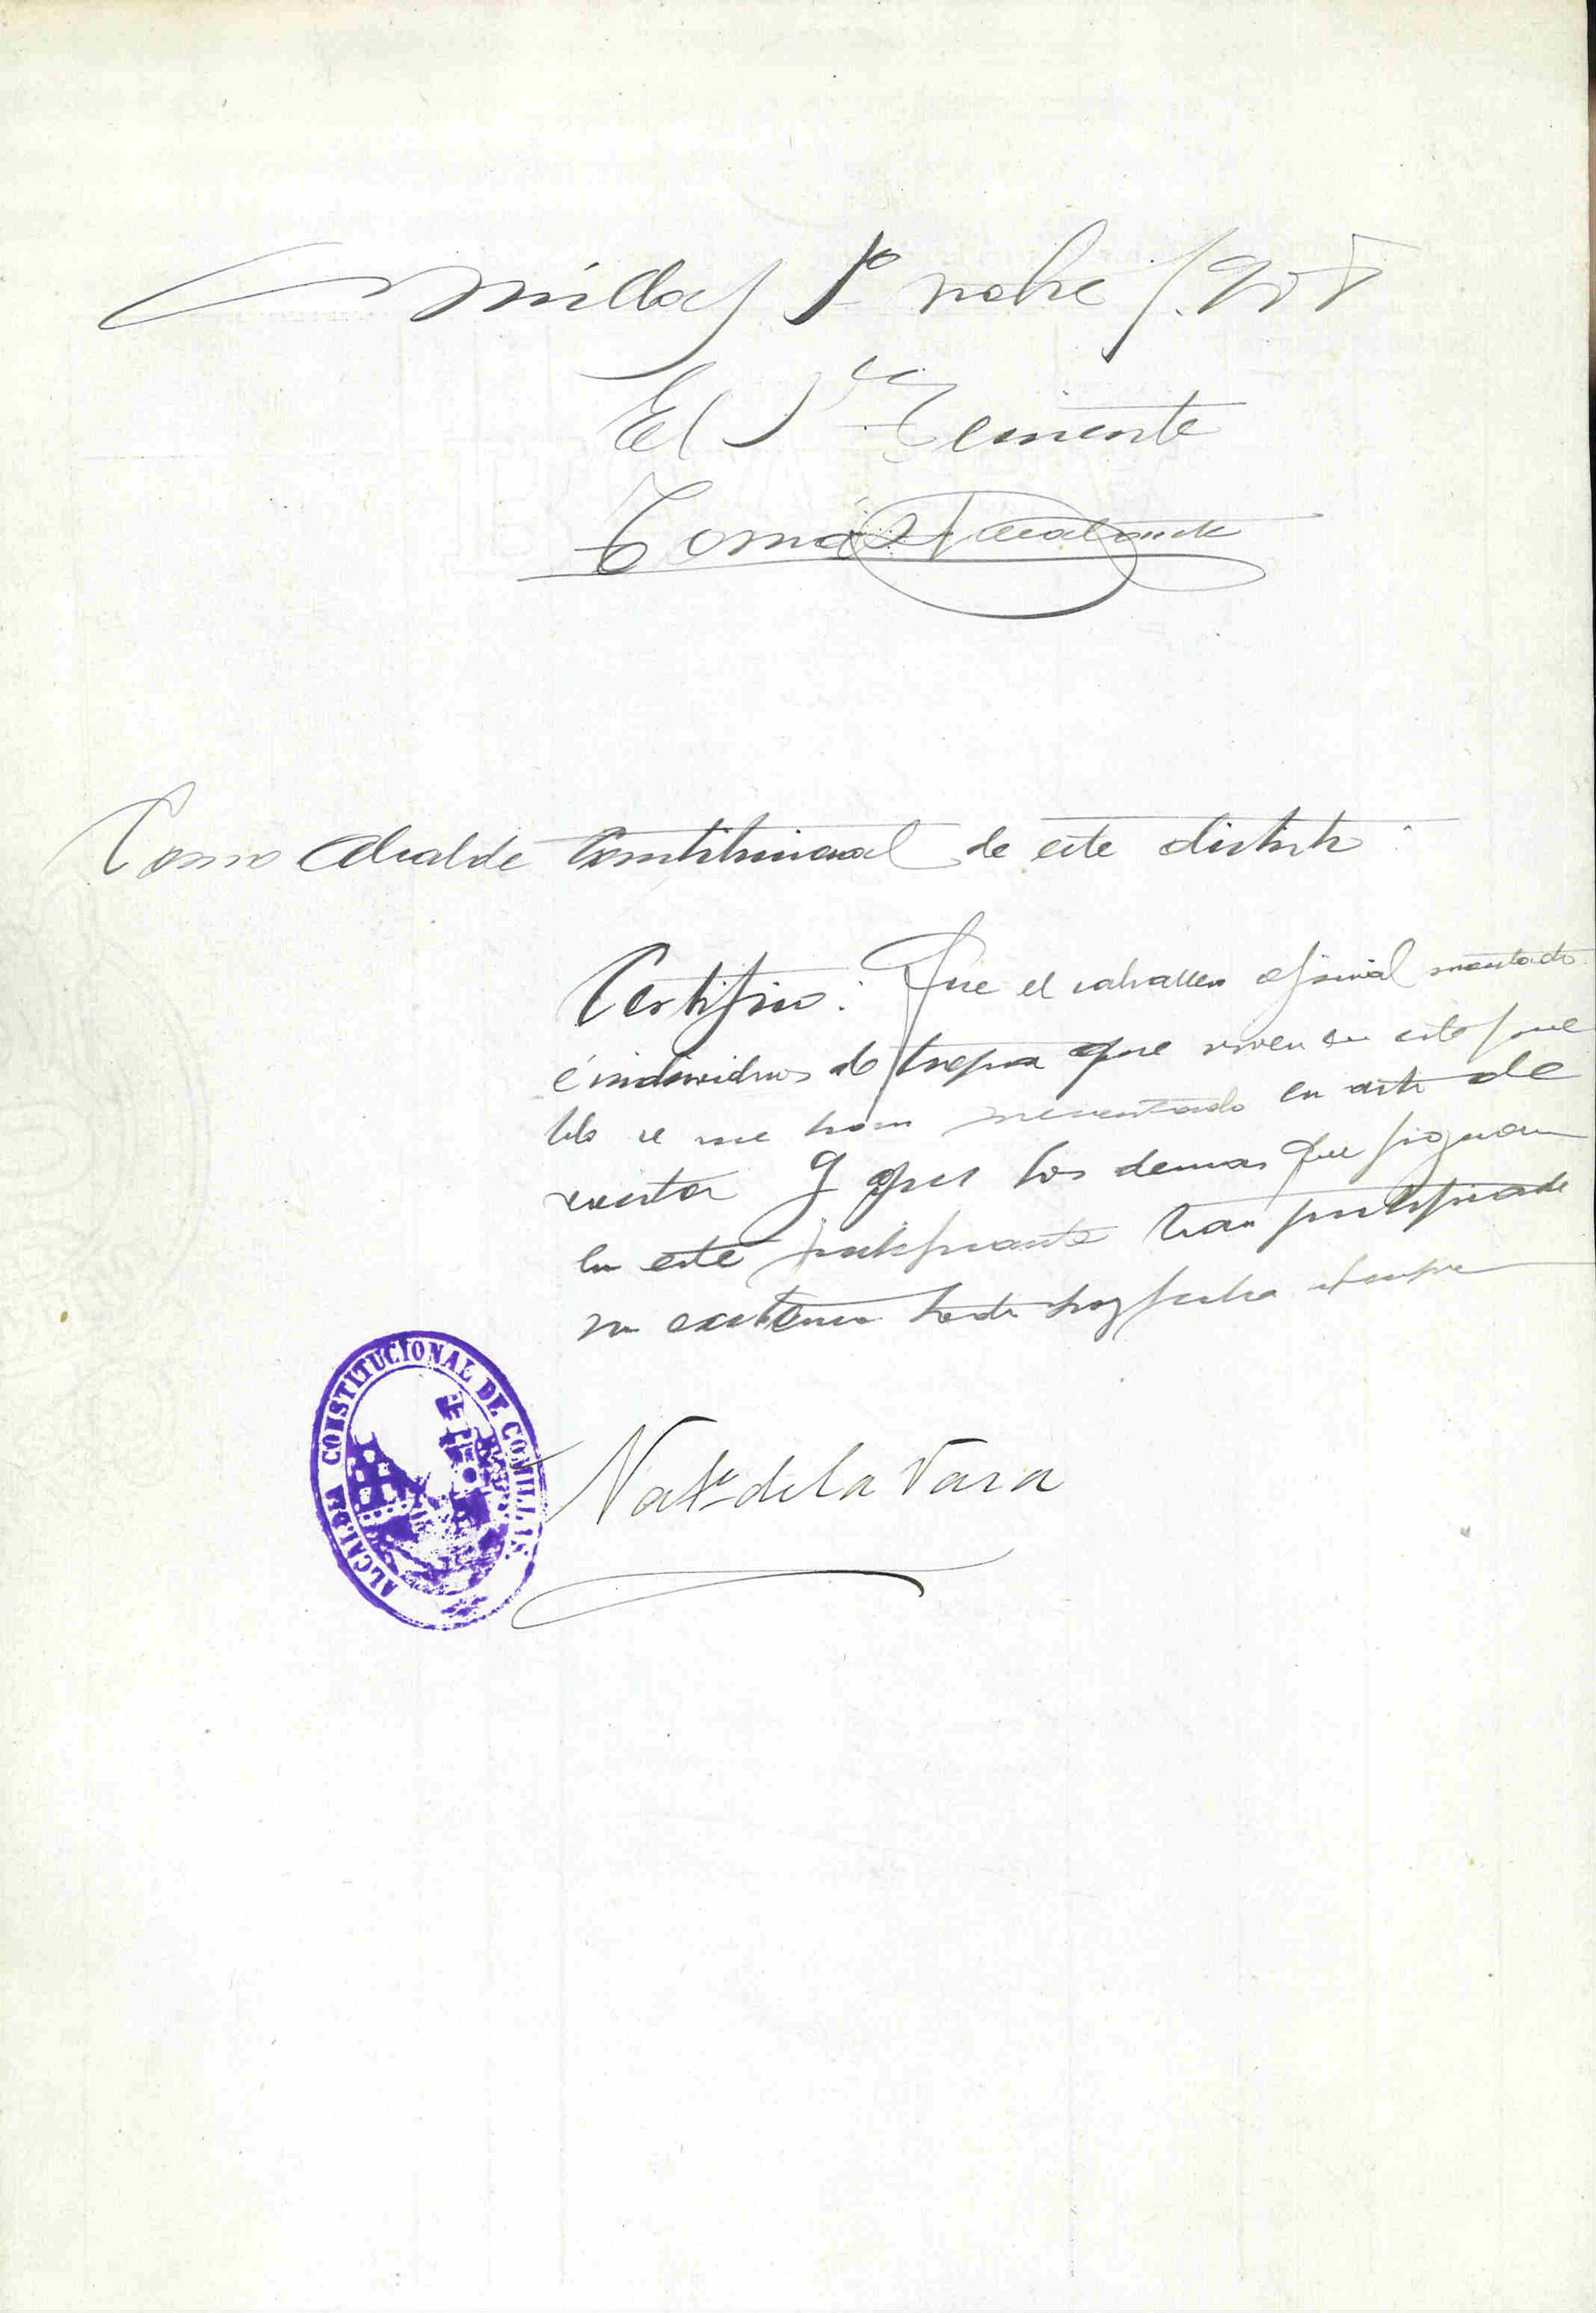 Comillas 1º nobre 1.908
El 2º Teniente
Tomás
Como Alcalde Constitucional de este distrito:
Certifico: Que el caballero oficial montado
é individuos de tropa que viven en este pue
blo se me han presentado en acto de
revista y que los demas que figuran
en este justificante han justificado
su existencia hasta hoy fecha
ALCALDIA CONSTITUCIONAL DE COMILLAS.
Natº de la Vara